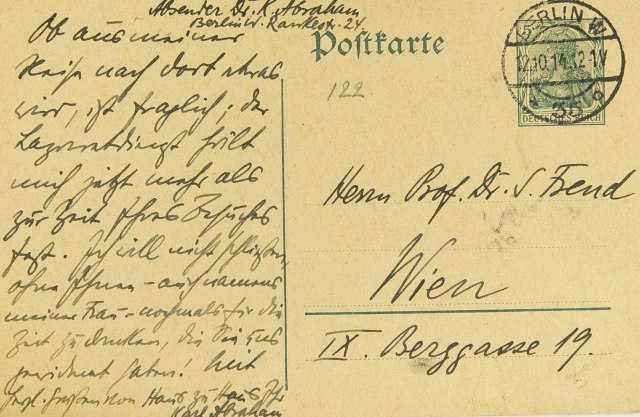 Absender Dr. K. Abraham
Berlin W. Rankestr. 24
Ob aus meiner
Reise nach dort etwas
wird, ist fraglich; der
Lazarettdienst hält
mich jetzt mehr als
zur Zeit Ihres Besuchs
fest. Ich will nicht schließen,
ohne Ihnen – auch namens
meiner Frau – nochmals für die
Zeit zu danken, die Sie uns
gewidmet haben. Mit
herzl. Grüßen von Haus zu Haus Ihr
Karl Abraham
Postkarte
122
BERLIN W
12.10.14. 12-1N
35
DEUTSCHES REICH
Herrn Prof. Dr. S. Freud
Wien
IX. Berggasse 19.